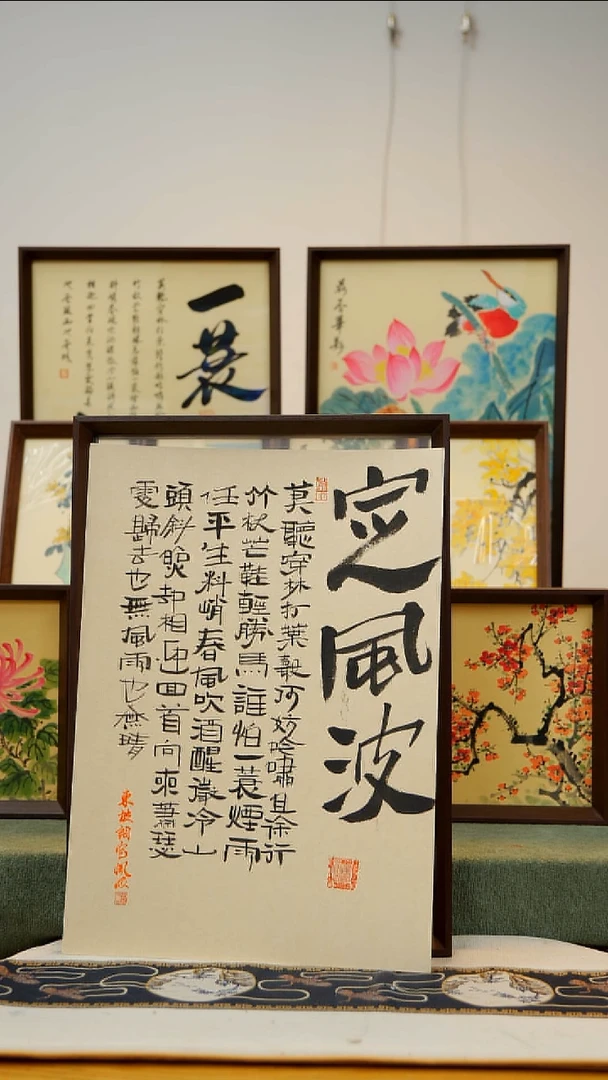 定風波
莫聽穿林打葉聲何妨吟嘯且徐行
竹杖芒鞋輕勝馬誰怕一蓑煙雨
任平生料峭春風吹酒醒微冷山
頭斜照却相迎回首向來蕭瑟
處歸去也無風雨也無晴
東坡詞定風波
一蓑